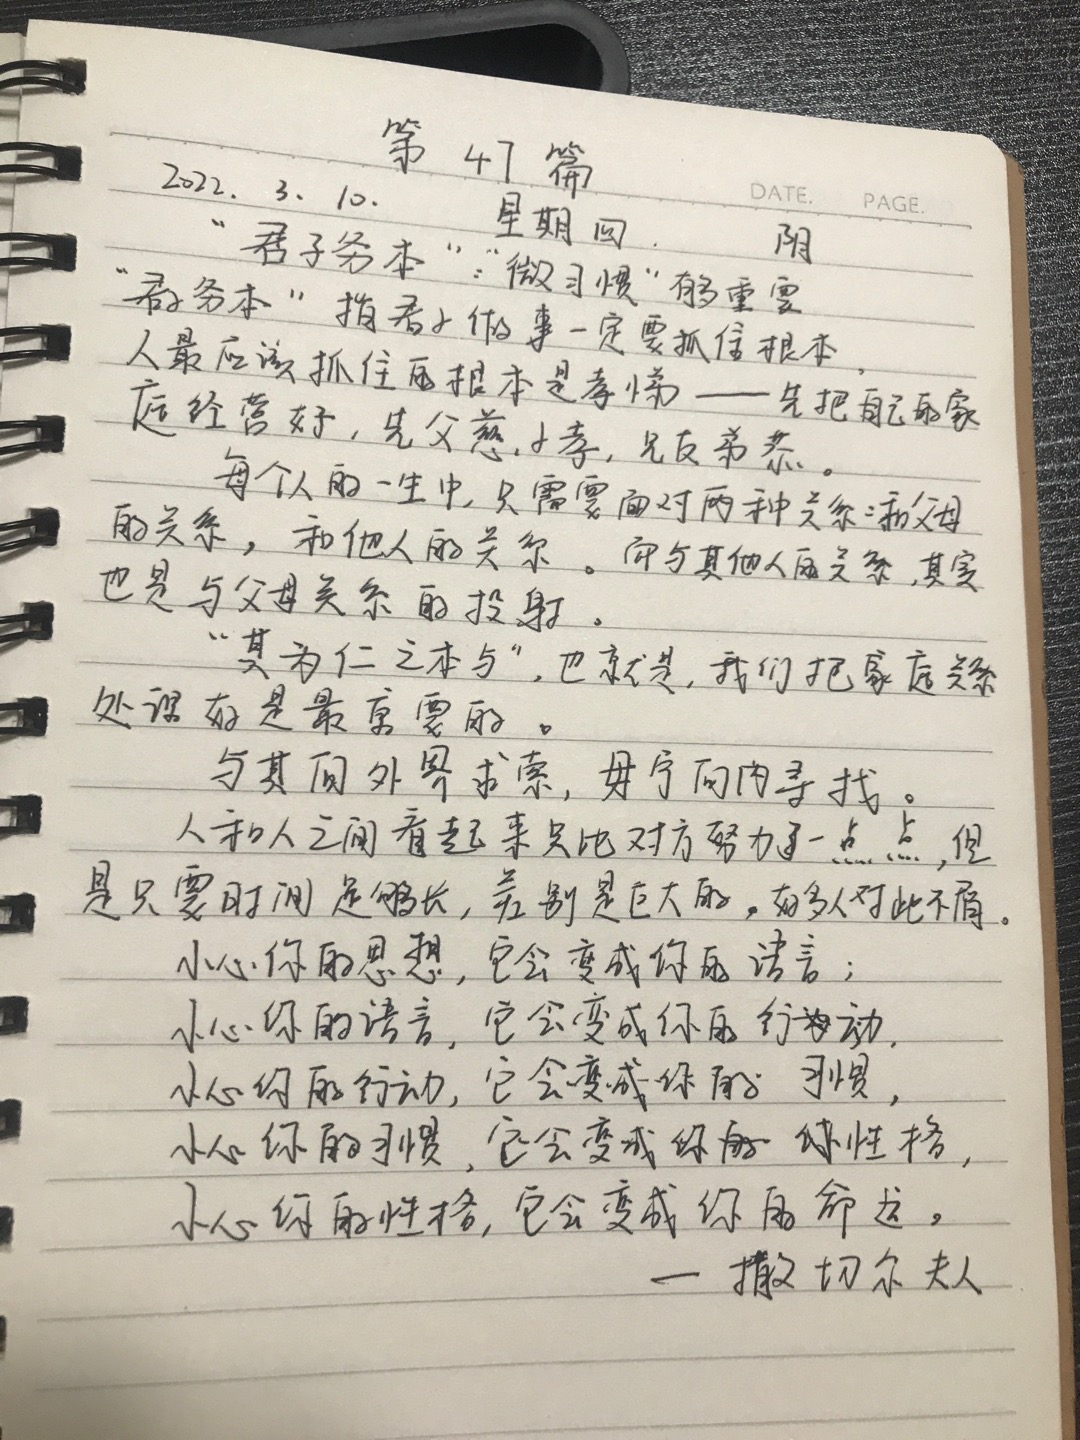 第47篇
DATE. PAGE.
2022. 3. 10. 星期四. 阴
“君子务本”:“微习惯”有多重要
“君子务本”指君子做事一定要抓住根本,
人最应该抓住的根本是孝悌——先把自己的家
庭经营好,先父慈,子孝,兄友弟恭。
每个人的一生中,只需要面对两种关系:和父母
的关系,和他人的关系。而与其他人的关系,其实
也是与父母关系的投射。
“其为仁之本与”,也就是,我们把家庭关系
处理好是最重要的。
与其向外界求索,毋宁向内寻找。
人和人之间看起来只比对方努力了一点点,但
是只要时间足够长,差别是巨大的。好多人对此不屑。
小心你的思想,它会变成你的语言;
小心你的语言,它会变成你的行动,
小心你的行动,它会变成你的习惯,
小心你的习惯,它会变成你的性格,
小心你的性格,它会变成你的命运。
—撒切尔夫人